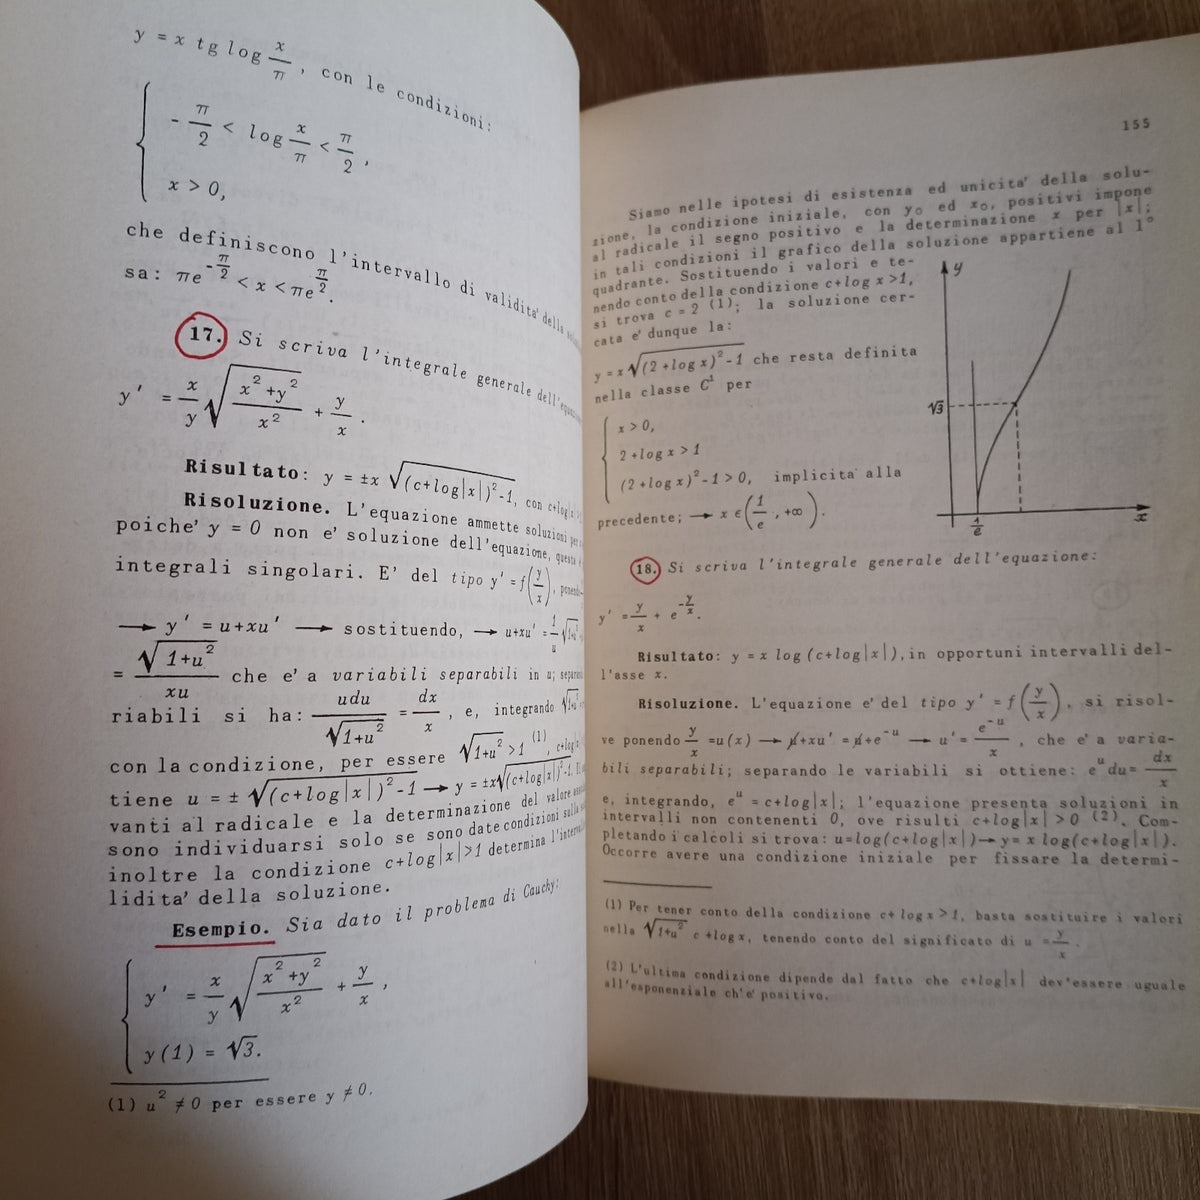 y = x tg log x/π, con le condizioni:
- π/2 < log x/π < π/2,
x > 0,
che definiscono l'intervallo di validita' della
sa: πe^(-π/2) < x < πe^(π/2).
17. Si scriva l'integrale generale dell'equazione
y' = x/y √((x²+y²)/x²) + y/x.
Risultato: y = ±x √((c+log|x|)²-1, con c+log|x|
Risoluzione. L'equazione ammette soluzioni per
poiche' y = 0 non e' soluzione dell'equazione, questa
integrali singolari. E' del tipo y' = f(y/x), ponendo
→ y' = u+xu' → sostituendo, → u+xu' = 1/u √1+u²
= √(1+u²)/xu che e' a variabili separabili in u; separando
riabili si ha: udu/√(1+u²) = dx/x, e, integrando √1+u²
con la condizione, per essere √(1+u²) > 1 (1), c+log|x|
tiene u = ± √((c+log|x|)²-1 → y = ±x√((c+log|x|)²-1.
vanti al radicale e la determinazione del valore
sono individuarsi solo se sono date condizioni sulla
inoltre la condizione c+log|x|>1 determina l'intervallo
lidita' della soluzione.
Esempio. Sia dato il problema di Cauchy:
y' = x/y √((x²+y²)/x²) + y/x,
y(1) = √3.
(1) u² ≠ 0 per essere y ≠ 0.
155
Siamo nelle ipotesi di esistenza ed unicita' della solu-
zione, la condizione iniziale, con y₀ ed x₀, positivi impone
al radicale il segno positivo e la determinazione x per |x|;
in tali condizioni il grafico della soluzione appartiene al 1°
quadrante. Sostituendo i valori e te-
nendo conto della condizione c+log x >1,
si trova c = 2 (1); la soluzione cer-
cata e' dunque la:
y = x√((2+log x)²-1 che resta definita
nella classe C¹ per
x > 0,
2+log x > 1
(2+log x)²-1 > 0, implicita alla
precedente; → x ∈ (1/e, +∞).
y
√3
1/e
x
18. Si scriva l'integrale generale dell'equazione:
y' = y/x + e^(-y/x).
Risultato: y = x log (c+log|x|), in opportuni intervalli del-
l'asse x.
Risoluzione. L'equazione e' del tipo y' = f(y/x), si risol-
ve ponendo y/x = u(x) → u+xu' = u+e^-u → u' = e^-u/x, che e' a varia-
bili separabili; separando le variabili si ottiene: e^u du = dx/x
e, integrando, e^u = c+log|x|; l'equazione presenta soluzioni in
intervalli non contenenti 0, ove risulti c+log|x| > 0 (2). Com-
pletando i calcoli si trova: u=log(c+log|x|) → y= x log(c+log|x|).
Occorre avere una condizione iniziale per fissare la determi-
(1) Per tener conto della condizione c+ log x > 1, basta sostituire i valori
nella √(1+u²) c +log x, tenendo conto del significato di u = y/x.
(2) L'ultima condizione dipende dal fatto che c+log|x| dev'essere uguale
all'esponenziale ch'e' positivo.